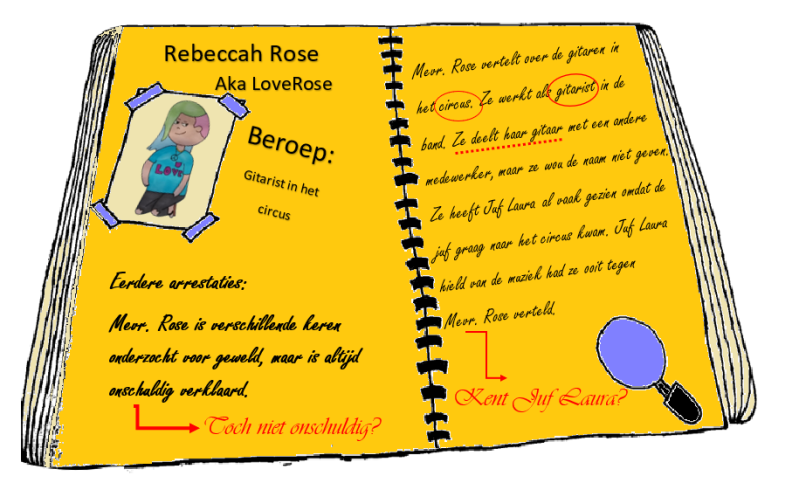 Rebeccah Rose
Aka LoveRose
LOVE
Beroep:
Gitarist in het
circus
Eerdere arrestaties:
Mevr. Rose is verschillende keren
onderzocht voor geweld, maar is altijd
onschuldig verklaard.
Toch niet onschuldig?
Mevr. Rose vertelt over de gitaren in
het circus. Ze werkt als gitarist in de
band. Ze deelt haar gitaar met een andere
medewerker, maar ze wou de naam niet geven.
Ze heeft Juf Laura al vaak gezien omdat de
juf graag naar het circus kwam. Juf Laura
hield van de muziek had ze ooit tegen
Mevr. Rose verteld.
Kent Juf Laura?